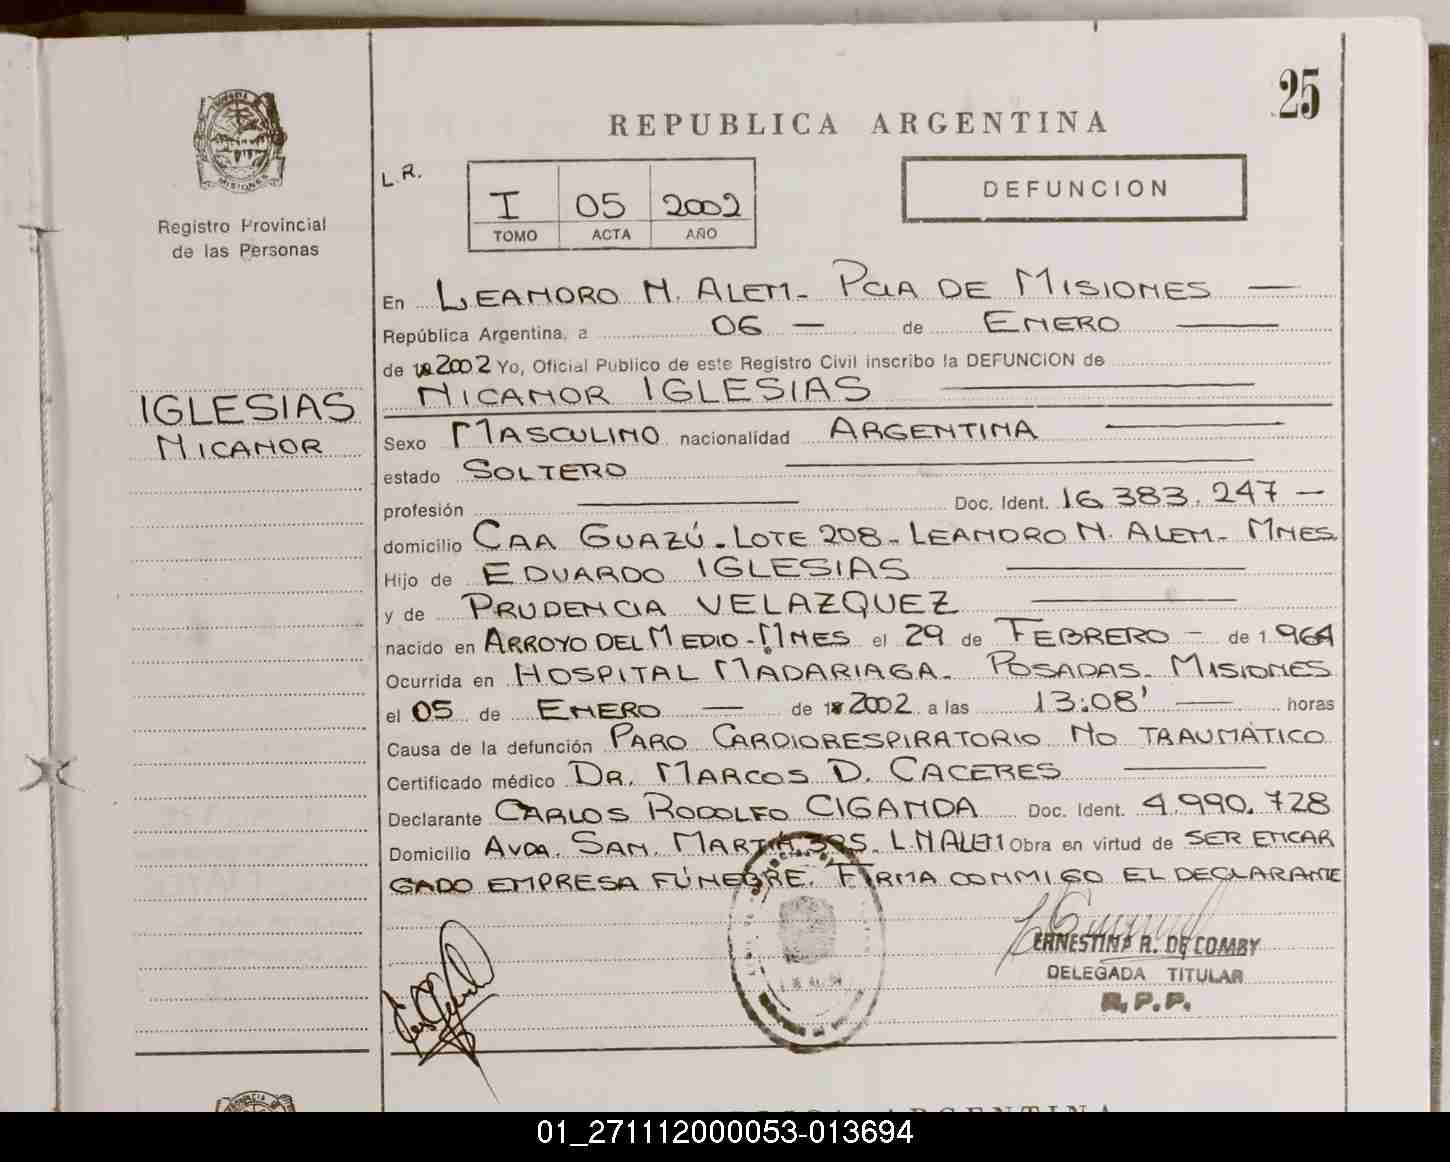 25
REPUBLICA ARGENTINA
L.R.
I 05 2002
TOMO ACTA AÑO
DEFUNCION
MISIONES
Registro Provincial
de las Personas
IGLESIAS
NICANOR
En LEANDRO N. ALEM - PCIA DE MISIONES —
República Argentina, a 06 — de ENERO —
de 2002 Yo, Oficial Publico de este Registro Civil inscribo la DEFUNCION de
NICANOR IGLESIAS —
Sexo MASCULINO nacionalidad ARGENTINA —
estado SOLTERO —
profesión — Doc. Ident. 16.383.247 —
domicilio CAA GUAZÚ - LOTE 208 - LEANDRO N. ALEM - MNES.
Hijo de EDUARDO IGLESIAS —
y de PRUDENCIA VELAZQUEZ —
nacido en ARROYO DEL MEDIO - MNES el 29 de FEBRERO — de 1.964
Ocurrida en HOSPITAL MADARIAGA - POSADAS - MISIONES
el 05 de ENERO — de 2002 a las 13:08' — horas
Causa de la defunción PARO CARDIORESPIRATORIO NO TRAUMÁTICO
Certificado médico DR. MARCOS D. CACERES —
Declarante CARLOS RODOLFO CIGANDA Doc. Ident. 4.990.728
Domicilio AVDA. SAN MARTÍN L.N ALEM Obra en virtud de SER ENCAR
GADO EMPRESA FÚNEBRE. FIRMA CONMIGO EL DECLARANTE
ERNESTINA R. DE COMBY
DELEGADA TITULAR
R.P.P.
REPUBLICA ARGENTINA
01_271112000053-013694